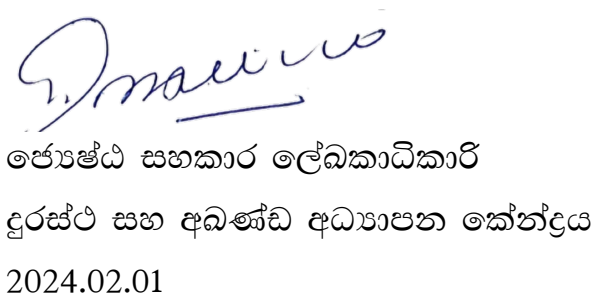 ජ්‍යෙෂ්ඨ සහකාර ලේඛකාධිකාරි
දුරස්ථ සහ අඛණ්ඩ අධ්‍යාපන කේන්ද්‍රය
2024.02.01